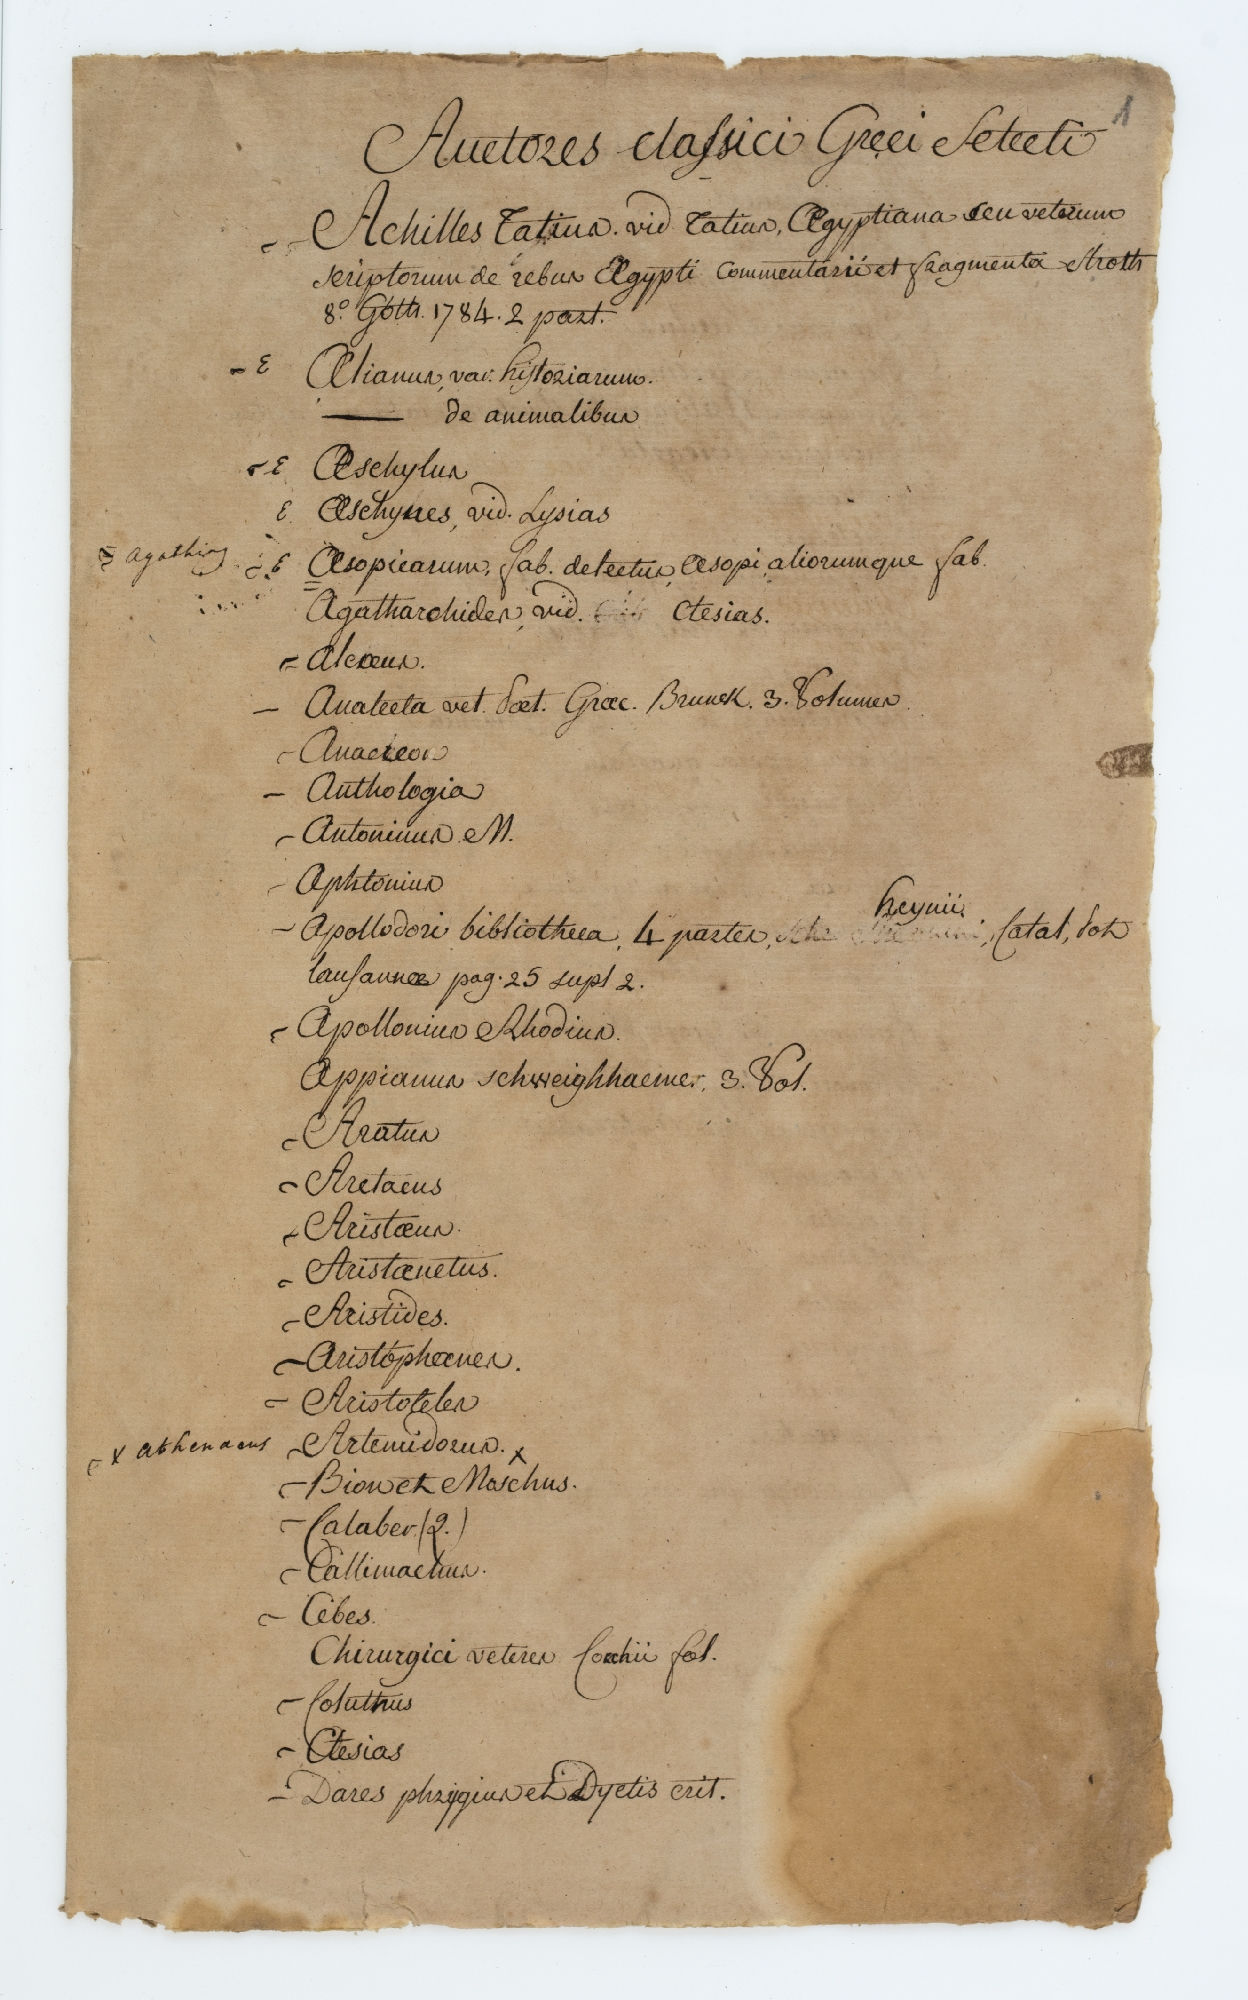 1
Auctores classici Græci Selecti
Achilles Tatius. vid Tatius, Ægyptiana seu veterum
scriptorum de rebus Ægypti commentarii et fragmenta Stroth
8.° Goth. 1784. 2 part.
- E Ælianus, var. historiarum.
—— de animalibus
- E Æschylus
E Æschynes, vid. Lysias
agathias E Æsopicarum, fab. delectus, Æsopi, aliorumque fab.
Agatharchides, vid. Ctesias.
- Alcæus.
- Analecta vet. Poet. Græc. Brunck. 3. Volumes
- Anacreon
- Anthologia
- Antoninus M.
- Aphtonius
heynii
- Apollodori bibliotheca, 4 partes, Catal, Pot
lausannæ pag. 25 supl 2.
- Apollonius Rhodius.
Appianus schweighhaeuser, 3. Vol.
- Aratus
- Aretaeus
- Aristæus.
- Aristænetus.
- Aristides.
- Aristophanes.
- Aristoteles
x athenaeus - Artemidorus. x
- Bion et Moschus.
- Calaber (Q.)
- Callimachus.
- Cebes.
Chirurgici veteres Cocchii fol.
- Coluthus
- Ctesias
- Dares phrygius et Dyctis crit.